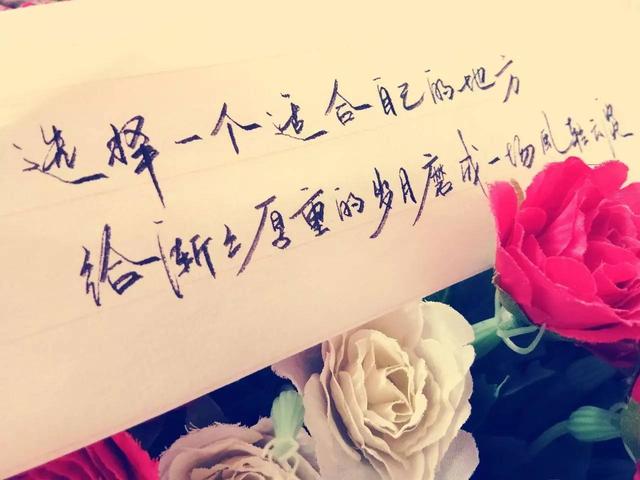 选择一个适合自己的地方
给渐々厚重的岁月磨成一场风轻云淡